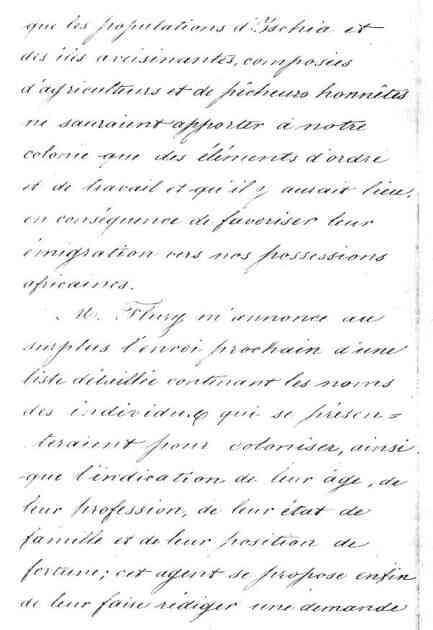 que les populations d'Ischia et
des îles avoisinantes, composées
d'agriculteurs et de pêcheurs honnêtes
ne sauraient apporter à notre
colonie que des éléments d'ordre
et de travail et qu'il y aurait lieu,
en conséquence de favoriser leur
émigration vers nos possessions
africaines.
M. Fleury m'annonce au
surplus l'envoi prochain d'une
liste détaillée contenant les noms
des individus qui se présen=
teraient pour coloniser, ainsi
que l'indication de leur âge, de
leur profession, de leur état de
famille et de leur position de
fortune; cet agent se propose enfin
de leur faire rédiger une demande